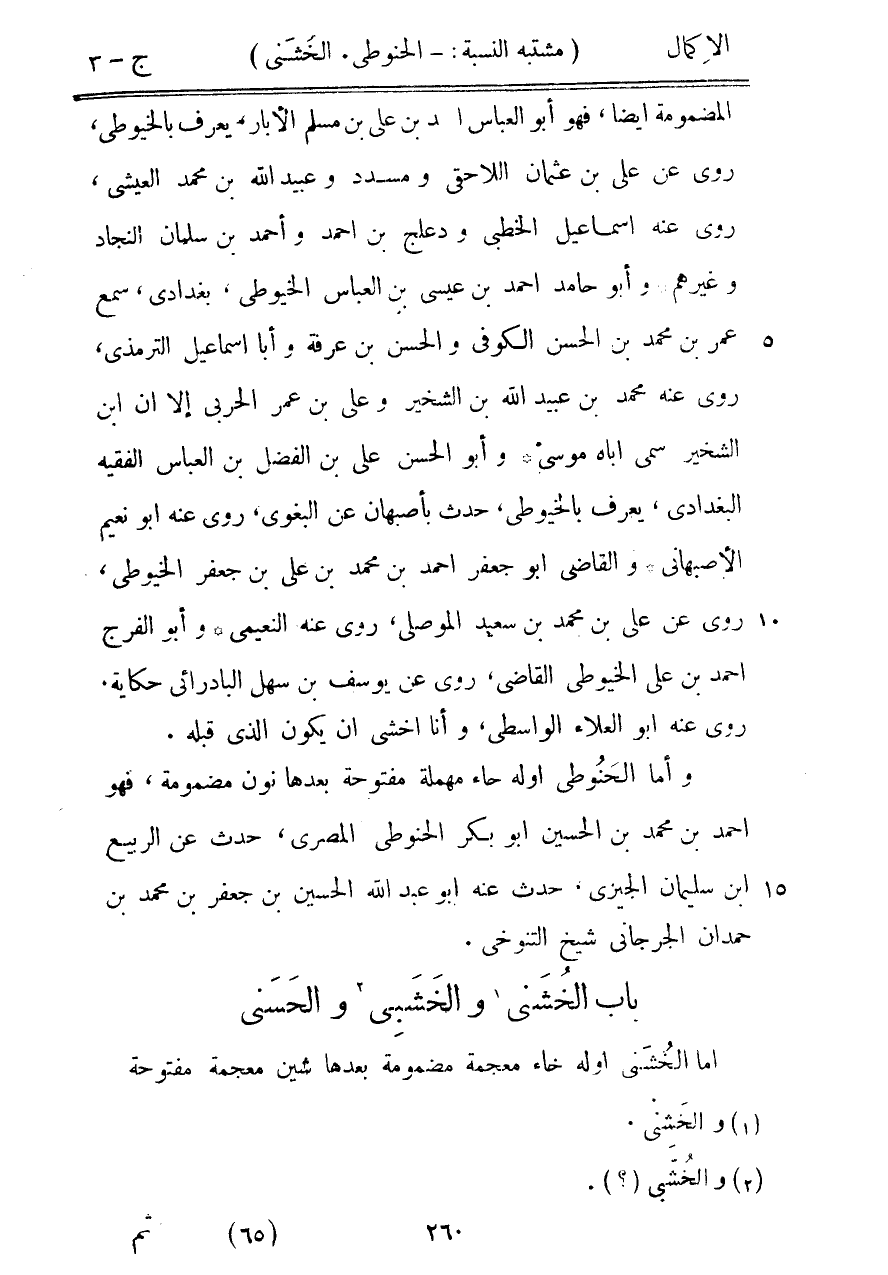 الإكمال ( مشتبه النسبة : - الحنوطى . الخُشَنى ) ج - ٣
المضمومة ايضا ، فهو أبو العباس ا د بن على بن مسلم الأبار ، يعرف بالخيوطى ،
روى عن على بن عثمان اللاحقى و مسدد و عبيد الله بن محمد العيشى ،
روى عنه اسماعيل الخطبى و دعلج بن احمد و أحمد بن سلمان النجاد
و غيرهم و أبو حامد احمد بن عيسى بن العباس الخيوطى ، بغدادى ، سمع
عمر بن محمد بن الحسن الكوفى و الحسن بن عرفة و أبا اسماعيل الترمذى ، ٥
روى عنه محمد بن عبيد الله بن الشخير و على بن عمر الحربى إلا ان ابن
الشخير سمى اباه موسى * و أبو الحسن على بن الفضل بن العباس الفقيه
البغدادى ، يعرف بالخيوطى ، حدث بأصبهان عن البغوى ، روى عنه ابو نعيم
الأصبهانى * و القاضى ابو جعفر احمد بن محمد بن على بن جعفر الخيوطى ،
روى عن على بن محمد بن سعيد الموصلى ، روى عنه النعيمى * و أبو الفرج ١٠
احمد بن على الخيوطى القاضى ، روى عن يوسف بن سهل البادرائى حكاية .
روى عنه ابو العلاء الواسطى ، و أنا اخشى ان يكون الذى قبله .
و أما الحَنُوطى اوله حاء مهملة مفتوحة بعدها نون مضمومة ، فهو
احمد بن محمد بن الحسين ابو بكر الحنوطى المصرى ، حدث عن الربيع
ابن سليمان الجيزى ، حدث عنه ابو عبد الله الحسين بن جعفر بن محمد بن ١٥
حمدان الجرجانى شيخ التنوخى .
باب الخُشَنى ١ و الخَشَبِى ٢ و الحَسَنى
اما الخُشَنى اوله خاء معجمة مضمومة بعدها شين معجمة مفتوحة
(١) و الخَشِنْى .
(٢) و الخُشّبِى (؟) .
٢٦٠ (٦٥) ثم